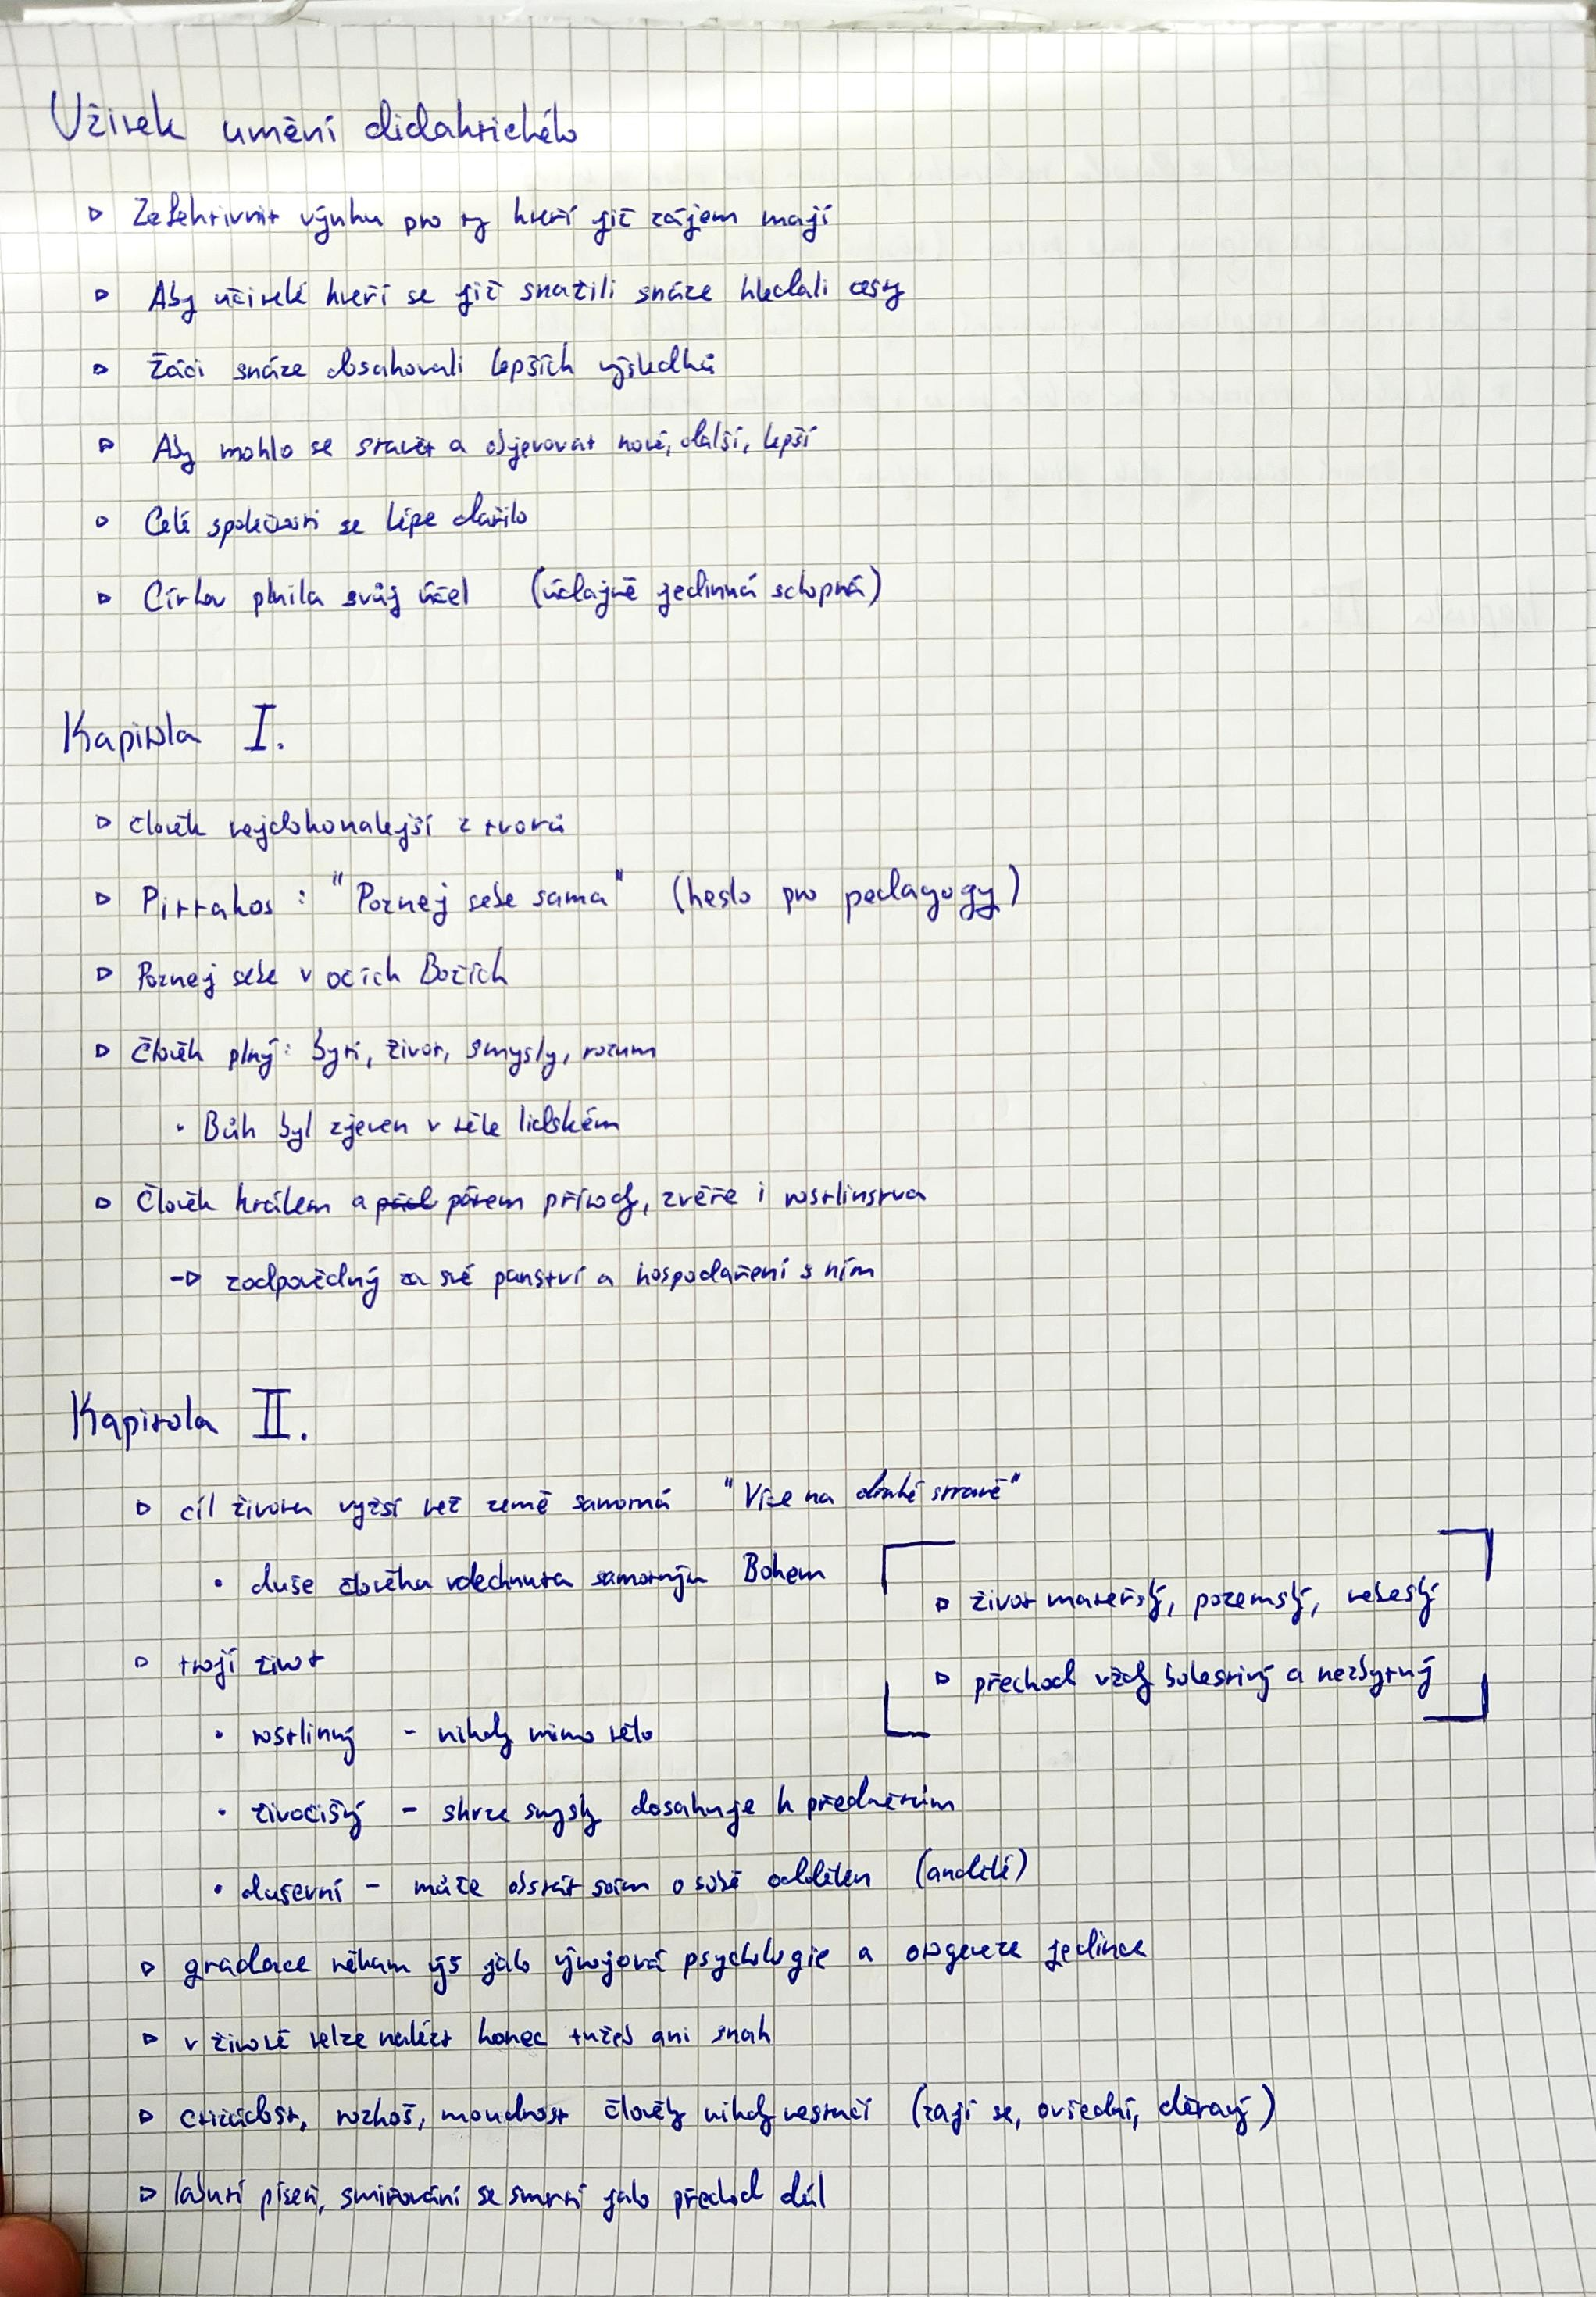 Užitek umění didaktického
▷ Zefektivnit výuku pro ty kteří již zájem mají
▷ Aby učitelé kteří se již snažili snáze hledali cesty
▷ Žáci snáze dosahovali lepších výsledků
▷ Aby mohlo se stavět a objevovat nové, další, lepší
▷ Celé společnosti se lépe dařilo
▷ Církev plnila svůj účel (údajně jedinná schopná)
Kapitola I.
▷ člověk nejdokonalejší z tvorů
▷ Pittakos : "Poznej sebe sama" (heslo pro pedagogy)
▷ Poznej sebe v očích Božích
▷ Člověk plný: bytí, život, smysly, rozum
• Bůh byl zjeven v těle lidském
▷ Člověk králem a pánem přírody, zvěře i rostlinstva
→ zodpovědný za své panství a hospodaření s ním
Kapitola II.
▷ cíl života vyžší než země samotná "Více na druhé straně"
• duše člověka vdechnuta samotným Bohem
▷ život mateřský, pozemský, nebeský
▷ přechod vždy bolestivý a nezbytný
▷ trojí život
• rostlinný - nikdy mimo tělo
• živočišý - skrze smysly dosahuje k předmětům
• duševní - může obstát sám o sobě oddělen (andělé)
▷ gradace někam výš jako vývojová psychologie a ontogeneze jedince
▷ v životě nelze nalézt konec tužeb ani snah
▷ ctižádost, rozkoš, moudrost člověky nikdy nestačí (zají se, ovšední, děravý)
▷ labutí píseň, smiřování se smrtí jako přechod dál